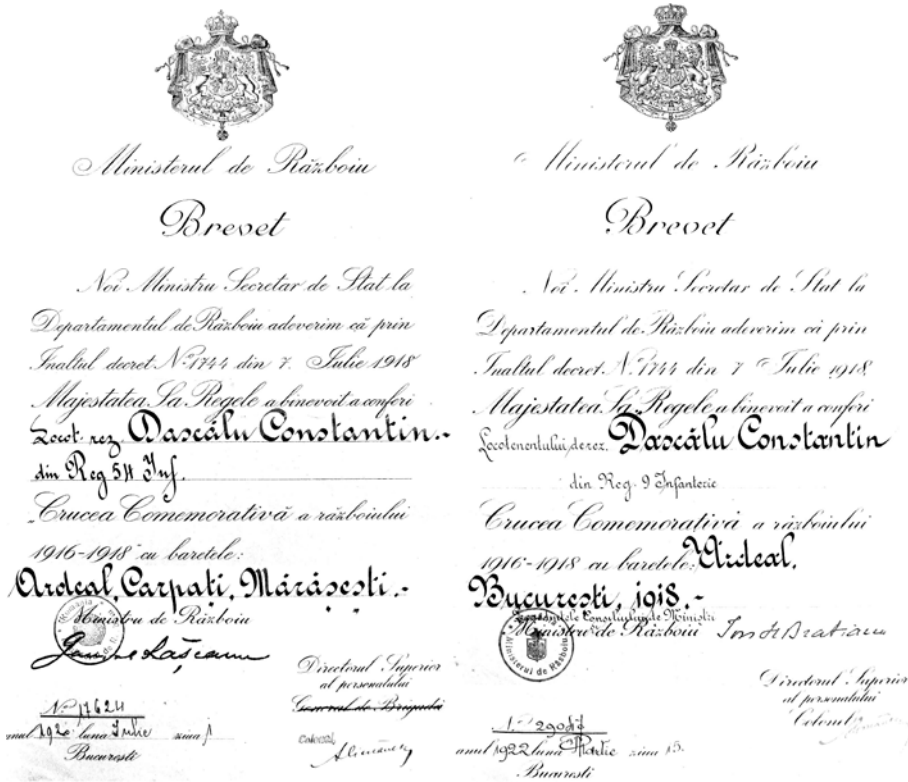 Ministerul de Războiu
Brevet
Noi Ministru Secretar de Stat la
Departamentul de Războiu adeverim că prin
Inaltul decret Nº 1744 din 7. Iulie 1918
Majestatea Sa Regele a binevoit a conferi
Locot. rez. Dascălu Constantin.-
din Reg 54 Inf.
Crucea Comemorativă a războiului
1916-1918 cu baretele:
Ardeal, Carpați, Mărășești.-
Ministru de Războiu
Directorul Superior
al personalului
General de Brigadă
Colonel,
Nº 17624
anul 1920 luna Iulie ziua 1
București
Ministerul de Războiu
Brevet
Noi Ministru Secretar de Stat la
Departamentul de Războiu adeverim că prin
Inaltul decret Nº 1744 din 7 Iulie 1918
Majestatea Sa Regele a binevoit a conferi
Locotenentului de rez. Dascălu Constantin
din Reg. 9 Infanterie
Crucea Comemorativă a războiului
1916-1918 cu baretele: Ardeal,
București, 1918.-
Președintele Consiliului de Miniștri
Ministru de Războiu Ion I C Bratianu
Ministerul de Războiu
Directorul Superior
al personalului
Colonel
anul 1922 luna Martie ziua 15.
București